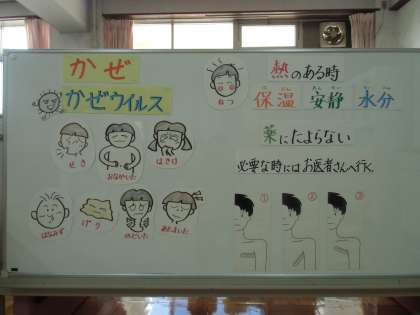 かぜ
かぜウイルス
せき
おなかいた
はきけ
はなみず
げり
のどいた
あたまいた
ねつ
熱のある時
保温 安静 水分
薬にたよらない
必要な時にはお医者さんへ行く。
① ② ③